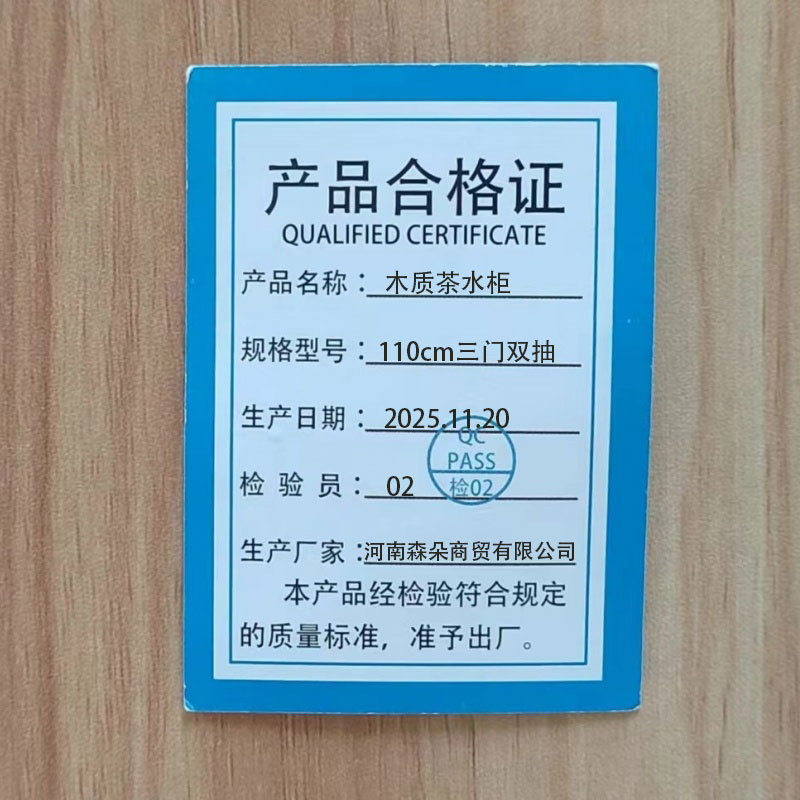 产品合格证
QUALIFIED CERTIFICATE
产品名称：木质茶水柜
规格型号：110cm三门双抽
生产日期：2025.11.20
QC
PASS
检验员：02
检02
生产厂家：河南森朵商贸有限公司
本产品经检验符合规定
的质量标准，准予出厂。